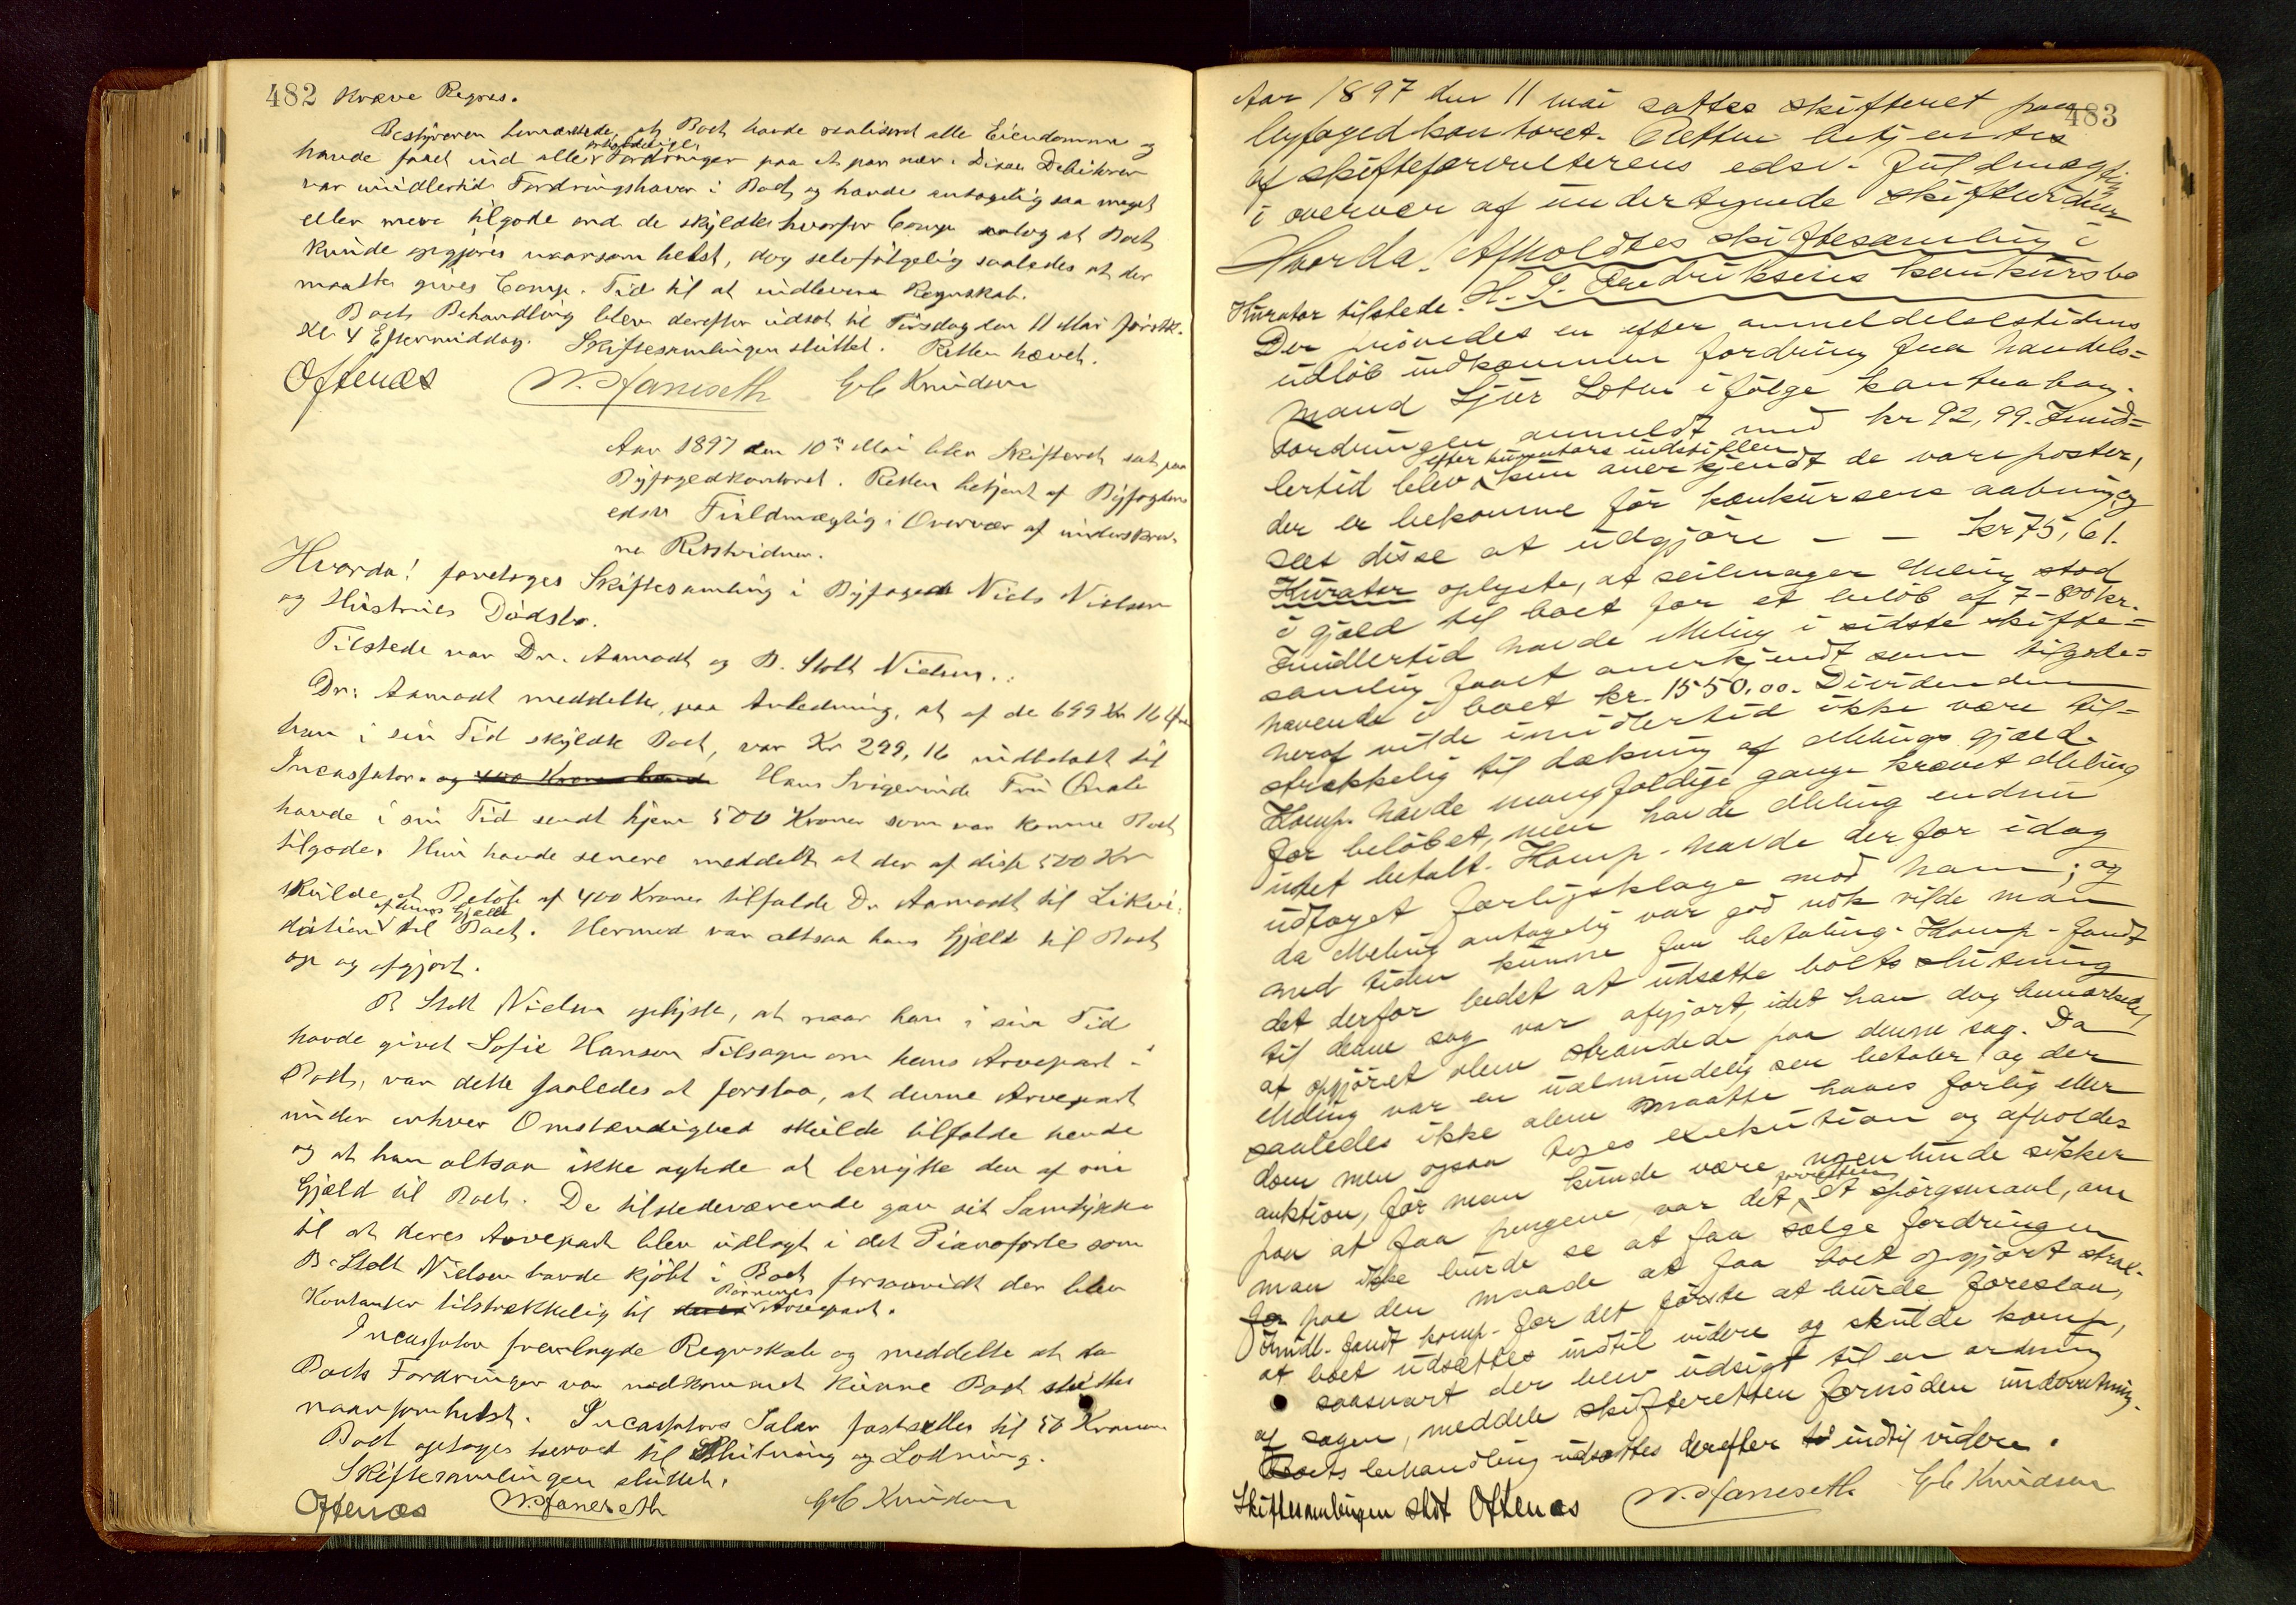 482 Kræve Regres.
Bestyreren bemærkede, at Boet havde realiseret alle Eiendomme og
havde faaet ind alle erholdelige Fordringer paa et par nær. Disse Debitorer
var imidlertid Fordringshaver i Boet og havde antagelig saa meget
eller mere tilgode end de skyldte hvorfor Comp. antog at Boet
kunde opgjøres naarsomhelst, dog selvfølgelig saaledes at der
maatte gives Comp. Tid til at indlevere Regnskab.
Boets Behandling blev derefter udsat til Tirsdag den 11 Mai førstk.
Kl. 4 Eftermiddag. Skiftesamlingen sluttet. Retten hævet.
Oftenæs N. Janeseth G C Knudsen
Aar 1897 den 10de Mai blev Skifteret sat paa
Byfogedkontoret. Retten betjent af Byfogdens
edsv Fuldmægtig i Overvær af underskrev-
ne Retsvidner.
Hvorda! foretoges Skiftesamling i Byfoged Niels Nielsen
og Hustrues Dødsbo.
Tilstede var Dr. Aamodt og B. Stolt Nielsen.
Dr. Aamodt meddelte, paa Anledning, at af de 699 Kr 16 Øre
han i sin Tid skyldte Boet, var Kr 299,16 indbetalt til
Incassator. og 400 Kroner havde Hans Svigerinde Fru
havde i sin Tid sendt hjem 500 Kroner som var komme Boet
tilgode. Hun havde senere meddelt at der af disse 500 Kr
skulde et Beløb af 400 Kroner tilfalde Dr Aamodt til Likvi-
dation af hans Gjæld til Boet. Hermed var altsaa hans Gjæld til Boet
op og afgjort.
B Stolt Nielsen oplyste, at naar han i sin Tid
havde givet Sofie Hansen Tilsagn om hans Arvepart i
Boet, var dette saaledes at forstaa, at denne Arvepart
under enhver Omstændighed skulde tilfalde hende
og at han altsaa ikke agtede at benytte den af sin
Gjæld til Boet. De tilstedeværende gav sit Samtykke
til at deres Arvepart blev udlagt i det Pianoforte som
B. Stolt Nielsen havde kjøbt i Boet forsaavidt der blev
Kontanter tilstrækkelig til Børnenes Arvepart.
Incassator fremlagde Regnskab og meddelte at da
Boets Fordringer var indkommet kunne Boet sluttes
naarsomhelst. Incassators Salær fastsættes til 50 Kroner
Boet optoges herved til Slutning og Lodning.
Skiftesamlingen sluttet.
Oftenæs N. Janeseth G C Knudsen
483
Aar 1897 den 11 mai sattes skifteret paa
byfogedkontoret. Retten betjentes
af skifteforvalterens edsv. fuldmægtig
i overvær af undertegnede skiftevidner
Hvorda! Afholdtes skiftesamling i
H. I. Hendriksens konkursbo
Kurator tilstede.
Der prøvedes en efter anmeldelsestidens
udløb indkommen fordring fra handels=
mand Sjur Lothe ifølge kontrabog.
Fordringen anmeldt med kr 92,99. Imid=
lertid blev efter kurators indstillen kun anerkjendt de vareposter,
der er bekomne før konkursens aabning og
sees disse at udgjøre - - kr 75,61.
Kurator oplyste, at seilmager Meling stod
i gjæld til boet for et beløb af 7-800 kr.
Imidlertid havde Meling i sidste skifte=
samling faaet anerkjendt som tilgode=
havende i boet kr. 1550,00. Dividenden
heraf vilde imidlertid ikke være til=
strækkelig til dækning af Melings gjæld.
Komp. havde mangfoldige gange krævet Meling
for beløbet, men havde Meling endnu
intet betalt. Komp. havde derfor idag
udtaget forligsklage mod ham; og
da Meling antagelig var god nok vilde man
med tiden kunne faa betaling. Komp. fandt
det derfor bedst at udsætte boets slutning
til denne sag var afgjort, idet han dog bemærkede,
at opgjøret alene strandede paa denne sag. Da
Meling var en ualmindelig sen betaler og der
saaledes ikke alene maatte haves forlig eller
dom men ogsaa tages exekution og afholdes
auktion, før man kunde være nogenlunde sikker
paa at faa pengene, var det forøvrigt et spørgsmaal, om
man ikke burde se at faa sælge fordringen
for paa den maade at faa boet opgjort strax.
Imidl. fandt komp. for det første at burde foreslaa,
at boet udsættes indtil videre og skulde komp,
saasnart der blev udsigt til en ordning
af sagen, meddele skifteretten fornøden underretning.
Boets behandling udsættes derefter indtil videre.
Skiftesamlingen slut Oftenæs N. Janeseth G C Knudsen